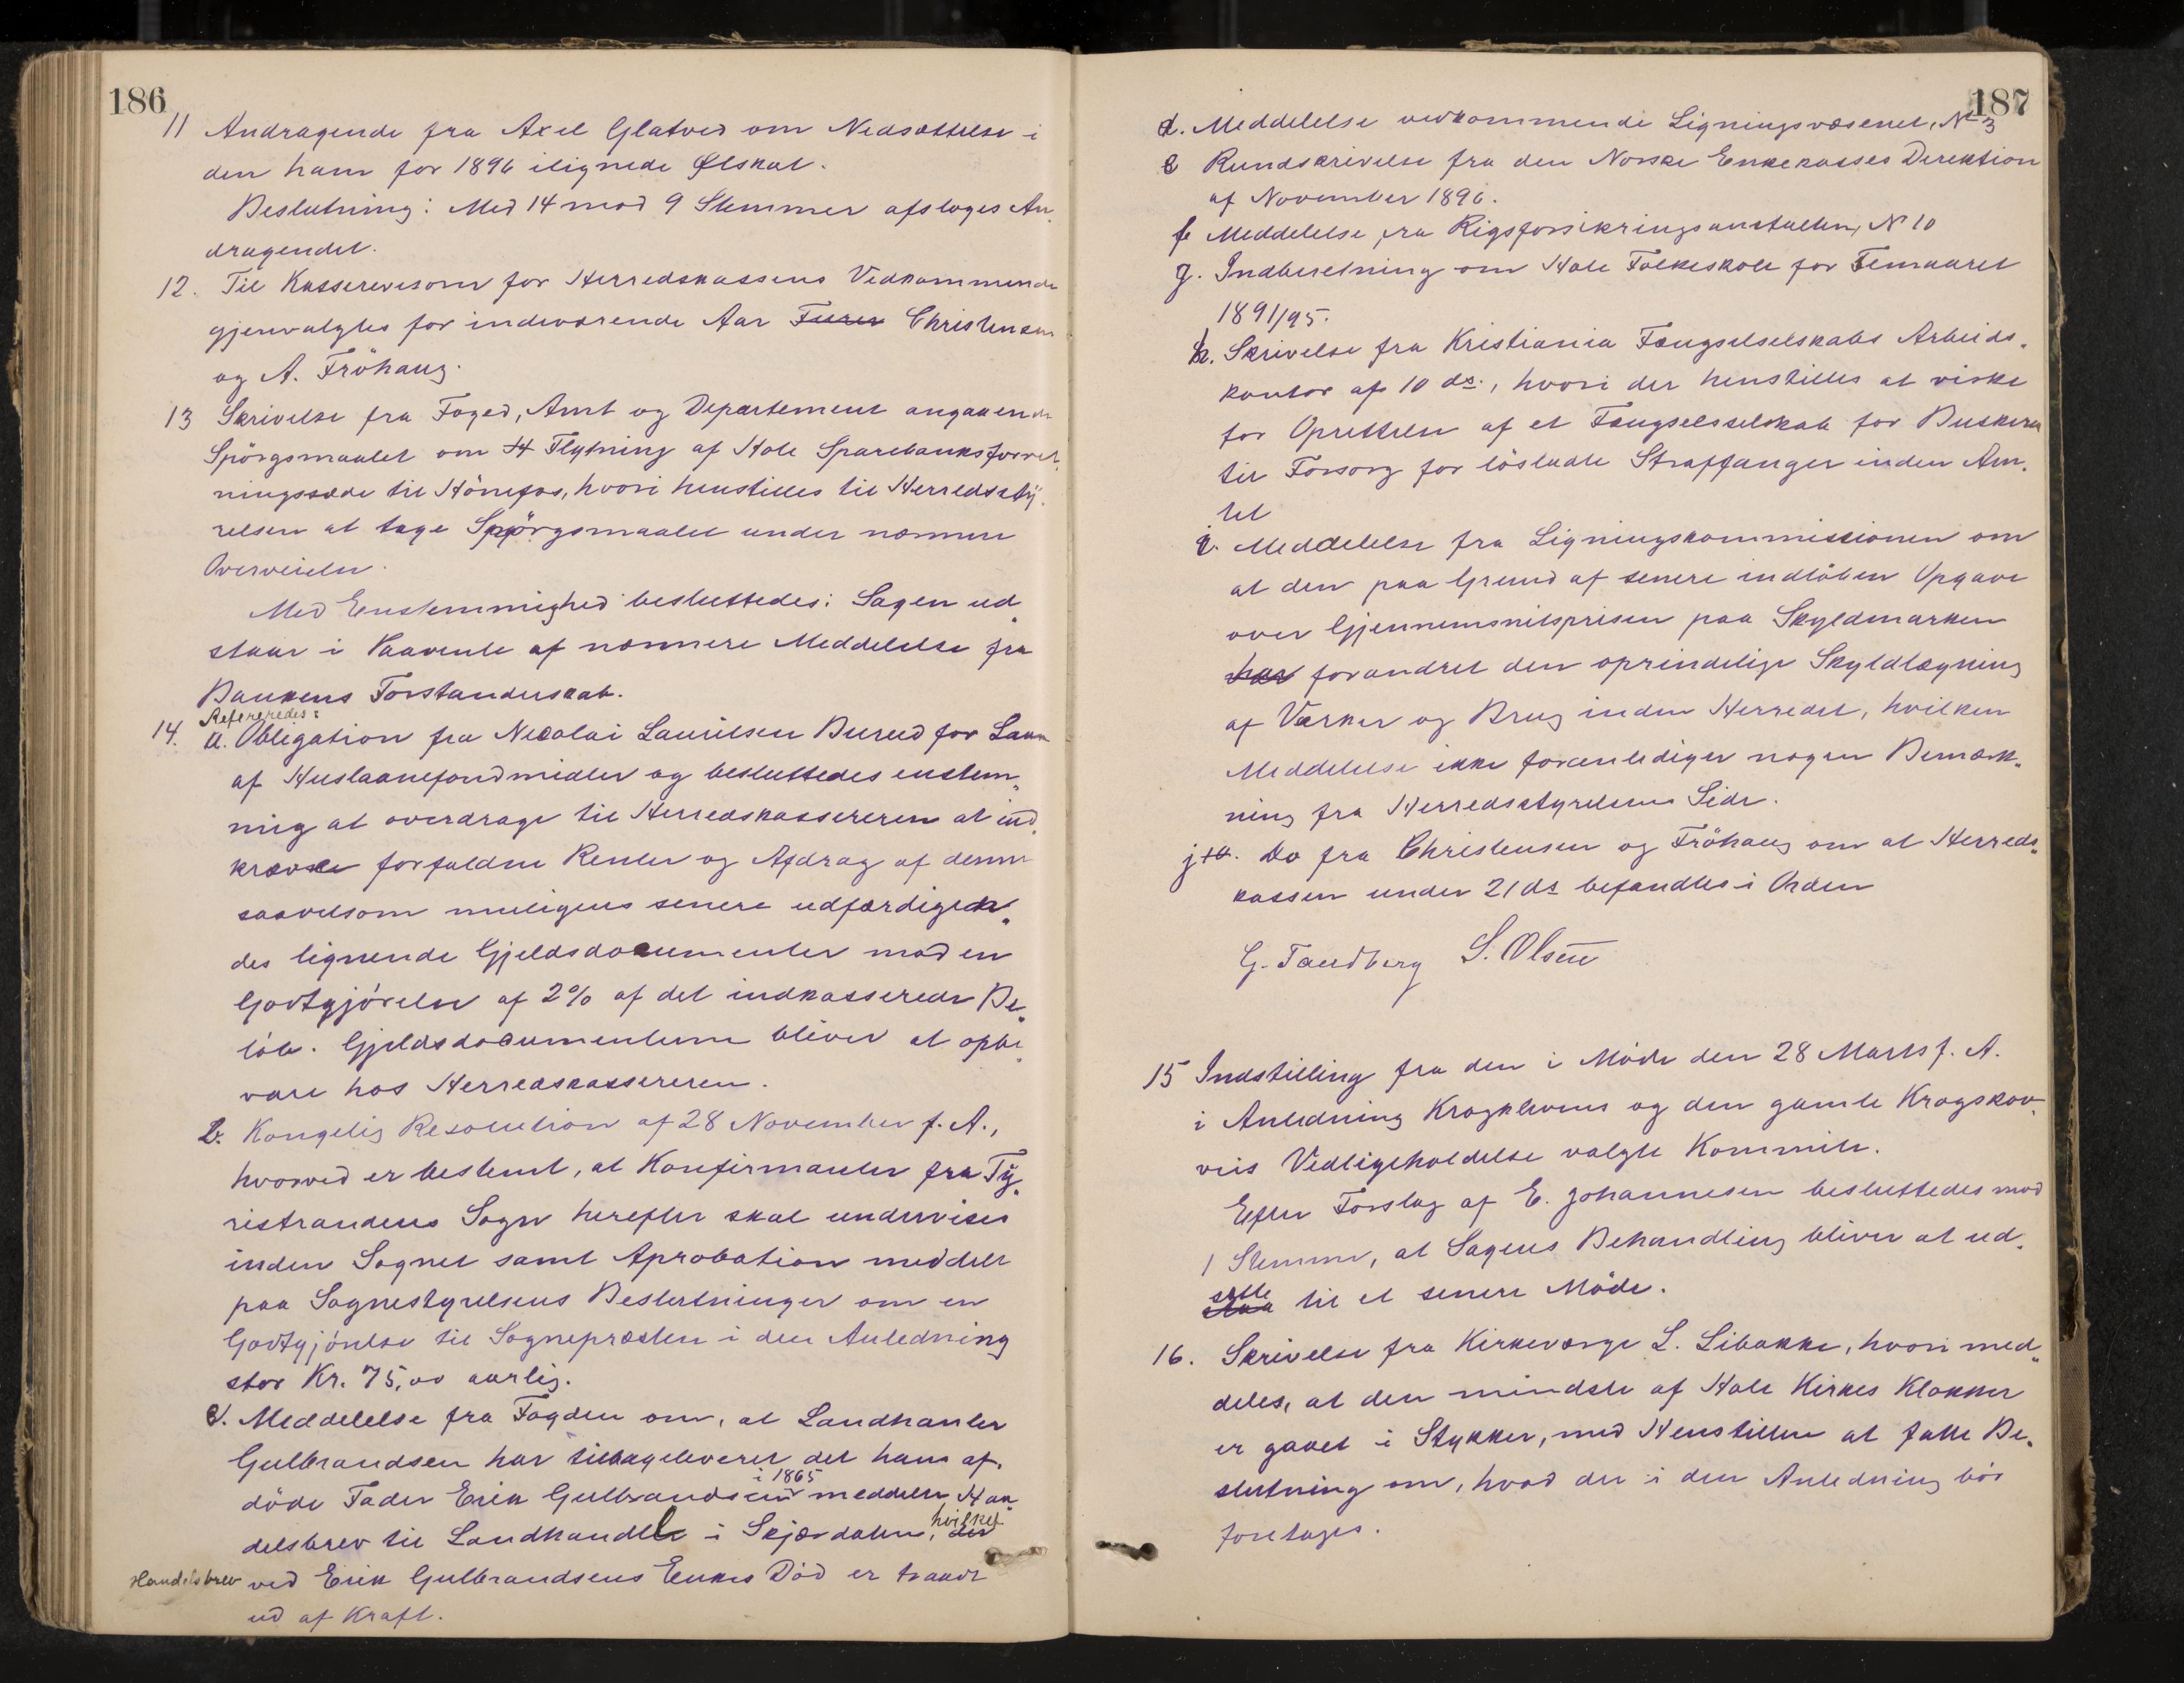 186
11 Andragende fra Axel Glatved om Nedsættelse i
den ham for 1896 ilignede Ølskat.
Beslutning: Med 14 mod 9 Stemmer afsloges An-
dragendet.
12. Til Kasserevisorer for Herredskassens Vedkommende
gjenvalgtes for indeværende Aar Furer Christensen
og A. Fröhaug.
13 Skrivelse fra Foged, Amt og Departement angaaende
Spörgsmaalet om Flytning af Hole Sparebanksforret-
ningssæde til Hönefos, hvori henstilles til Herredssty-
relsen at tage Spörgsmaalet under nærmere
Overveielse.
Med Enstemmighed besluttedes: Sagen ud-
staar i Paavente af nærmere Meddelelse fra
Bankens Forstanderskab.
Refereredes:
14. a. Obligation fra Nicolai Lauritsen Burud for Laan
af Huslaanefondmidler og besluttedes enstem-
mig at overdrage til Herredskassereren at ind-
kræve forfaldne Renter og Afdrag af denne
saavelsom muligens senere udfærdigen-
des lignende Gjeldsdocumenter mod en
Godtgjörelse af 2% af det indkasserede Be-
löb. Gjeldsdocumenterne bliver at opbe-
vare hos Herredskassereren.
b. Kongelig Resolution af 28 November f. A.,
hvorved er bestemt, at Konfirmanter fra Ty-
ristrandens Sogn herefter skal undervises
inden Sognet samt Aprobation meddelt
paa Sognestyrelsens Beslutninger om en
Godtgjörelse til Sognepræsten i den Anledning
stor Kr. 75,00 aarlig.
c. Meddelelse fra Fogden om, at Landhanler
Gulbrandsen har tilbageleveret det hans af-
i 1865
döde Fader Erik Gulbrandsen meddelte Han-
hvilket
delsbrev til Landhandel i Skjærdalen, der
Handelsbrev ved Erik Gulbrandsens Enkes Död er traadt
ud af Kraft.
187
d. Meddelelse vedkommende Ligningsvæsenet, N 3
e Rundskrivelse fra den Norske Enkekasses Direktion
af November 1896.
f Meddelelse fra Rigsforsikringsanstalten, N 10
g. Indberetning om Hole Folkeskole for Femaaret
1891/95.
h. Skrivelse fra Kristiania Fængselselskabs Arbeids-
kontor af 10 ds., hvori der henstilles at virke
for Oprettelse af et Fængselsselskab for Buskerud
til Forsorg for löslatte Straffanger inden Am-
tet
i. Meddelelse fra Ligningskommissionen om
at den paa Grund af senere indlöben Opgave
over Gjennemsnitsprisen paa Skyldmarken
har forandret den oprindelige Skyldlægning
af Værker og Brug inden Herredet, hvilken
Meddelelse ikke foranlediger nogen Bemærk-
ning fra Herredsstyrelsens Side.
j. Do fra Christensen og Fröhaug om at Herreds-
kassen under 21 ds befandtes i Orden
G. Tandberg S. Olsen
15 Indstilling fra den i Möde den 28 Marts f. A.
i Anledning Krogklevens og den gamle Krogskov-
veis Vedligeholdelse valgte Kommite.
Efter Forslag af E. Johannesen besluttedes mod
1 Stemme, at Sagens Behandling bliver at ud-
sætte
staa til et senere Möde.
16. Skrivelse fra Kirkeværge L. Libakke, hvori med-
deles, at den mindste af Hole Kirkes Klokker
er gaaet i Stykker, med Henstillen at fatte Be-
slutning om, hvad der i den Anledning bör
foretages.